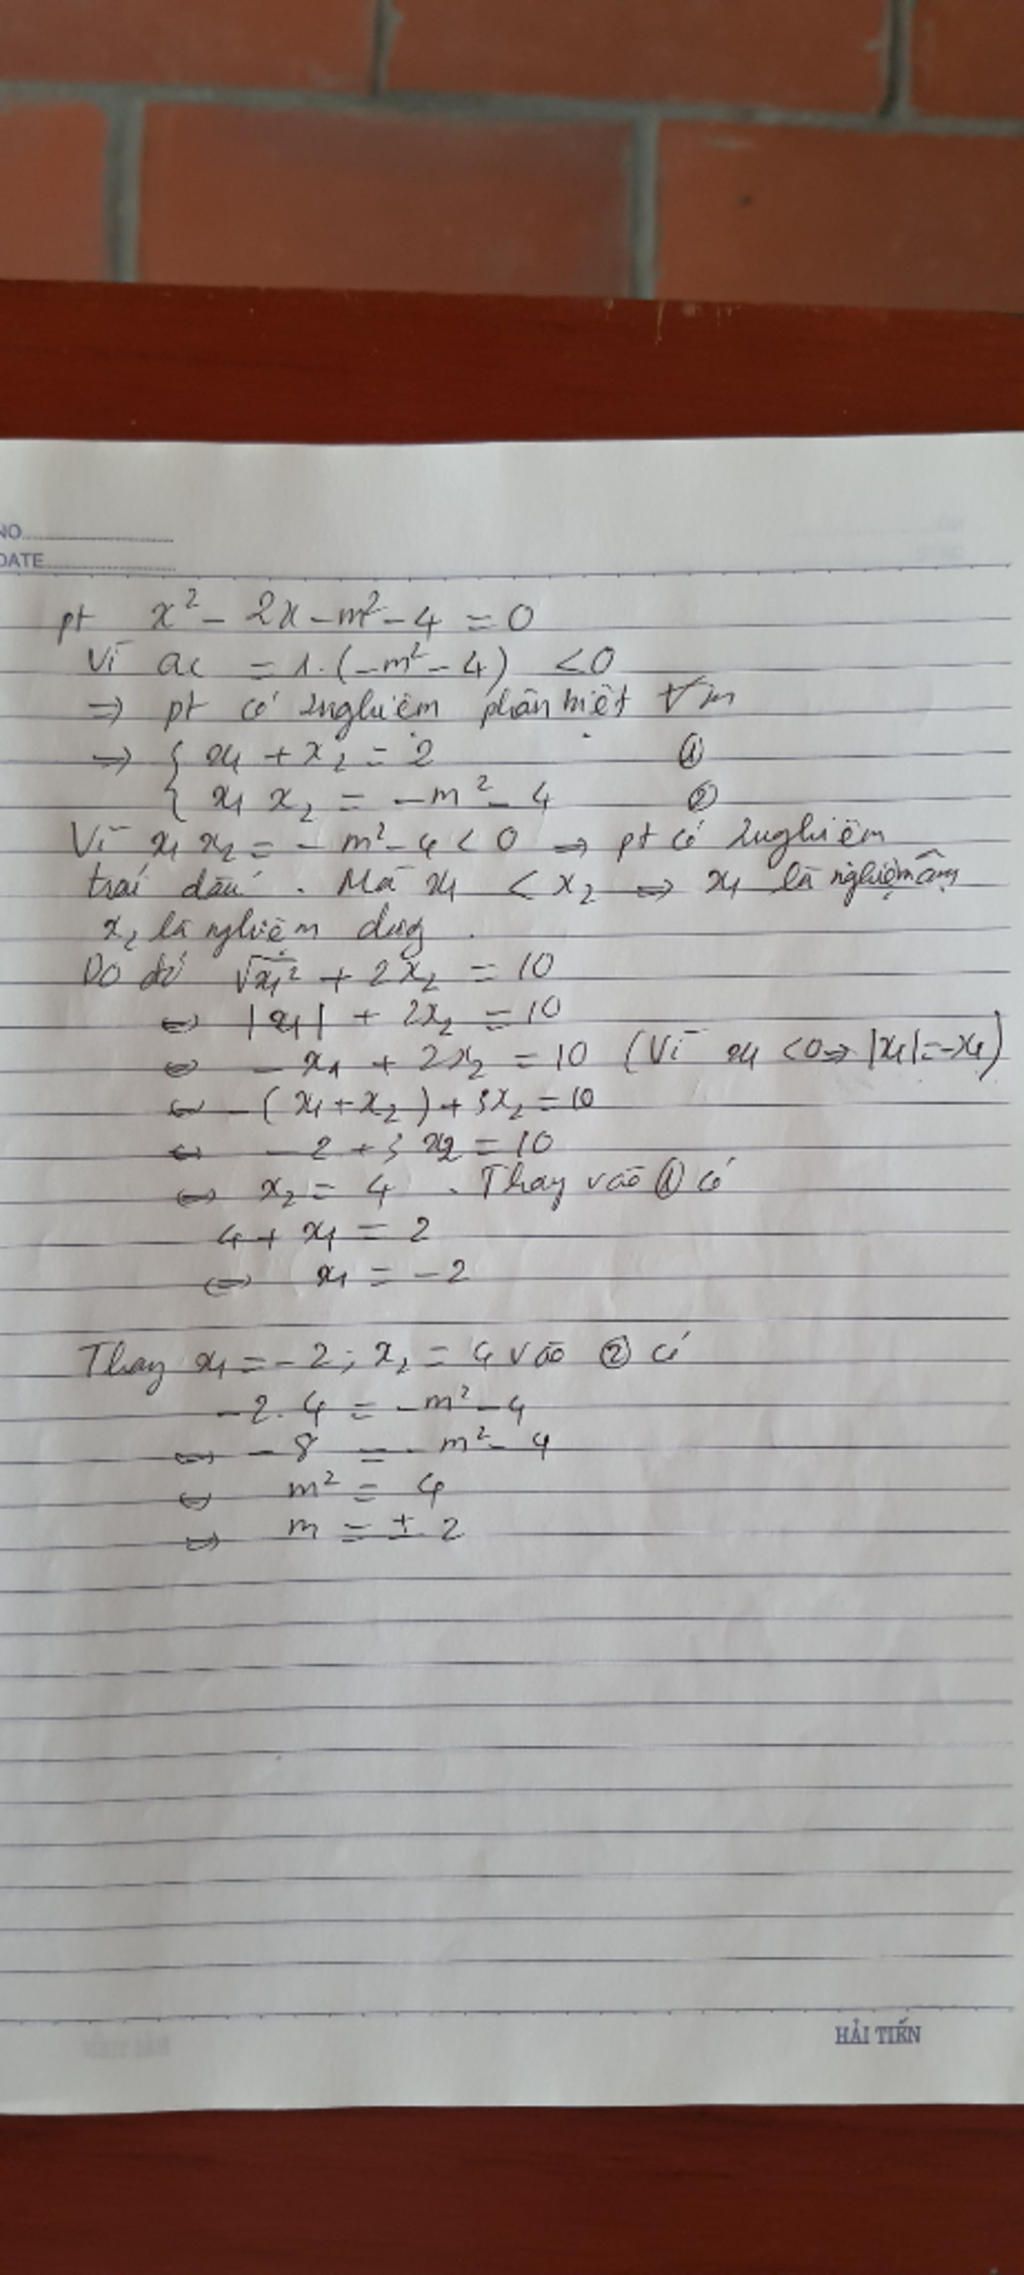 NO
DATE
pt x² - 2x - m² - 4 = 0
Vì ac = 1.(-m² - 4) < 0
⇒ pt có 2 nghiệm phân biệt ∀ m
⇒ { x₁ + x₂ = 2 ①
{ x₁ x₂ = -m² - 4 ②
Vì x₁ x₂ = - m² - 4 < 0 ⇒ pt có 2 nghiệm
trái dấu. Mà x₁ < x₂ ⇒ x₁ là nghiệm âm
x₂ là nghiệm dưg.
Do đó √x₁² + 2x₂ = 10
⇔ |x₁| + 2x₂ = 10
⇔ - x₁ + 2x₂ = 10 (Vì x₁ < 0 ⇒ |x₁| = -x₁)
⇔ -(x₁ + x₂) + 3x₂ = 10
⇔ - 2 + 3 x₂ = 10
⇔ x₂ = 4 . Thay vào ① có
4 + x₁ = 2
⇔ x₁ = - 2
Thay x₁ = - 2 ; x₂ = 4 vào ② có
- 2 . 4 = -m² - 4
⇔ - 8 = - m² - 4
⇔ m² = 4
⇔ m = ± 2
HẢI TIẾN